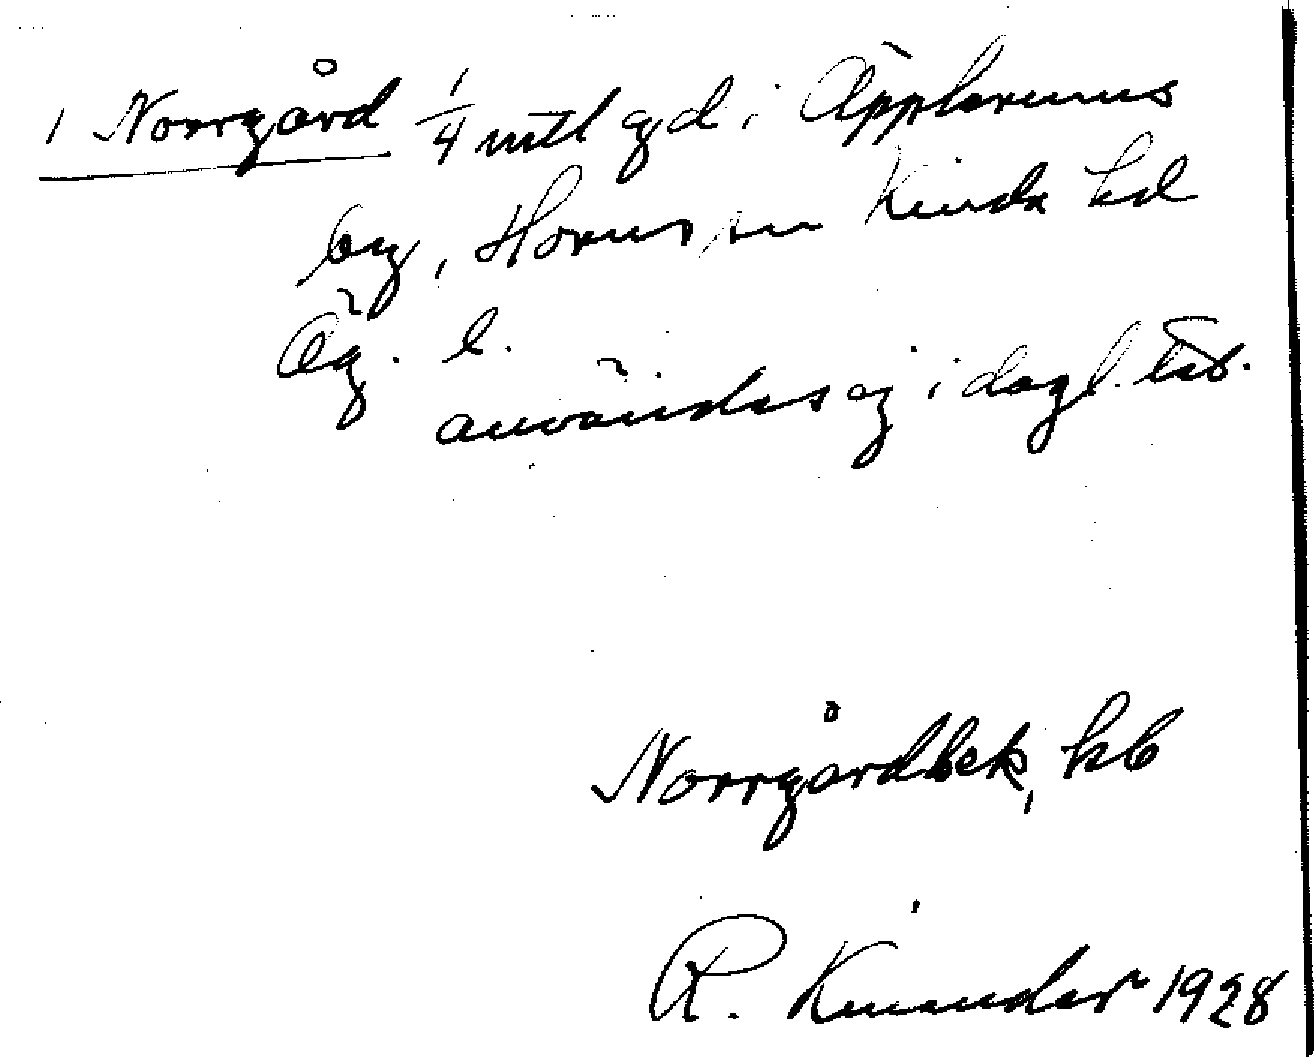 1 Norrgård 1/4 mtl gd i Äpplemus
by, Horns sn Kinda hd
Ög. l.
användes ej i dagl. tal.
Norrgårdbek, kb
R. Kinander 1928